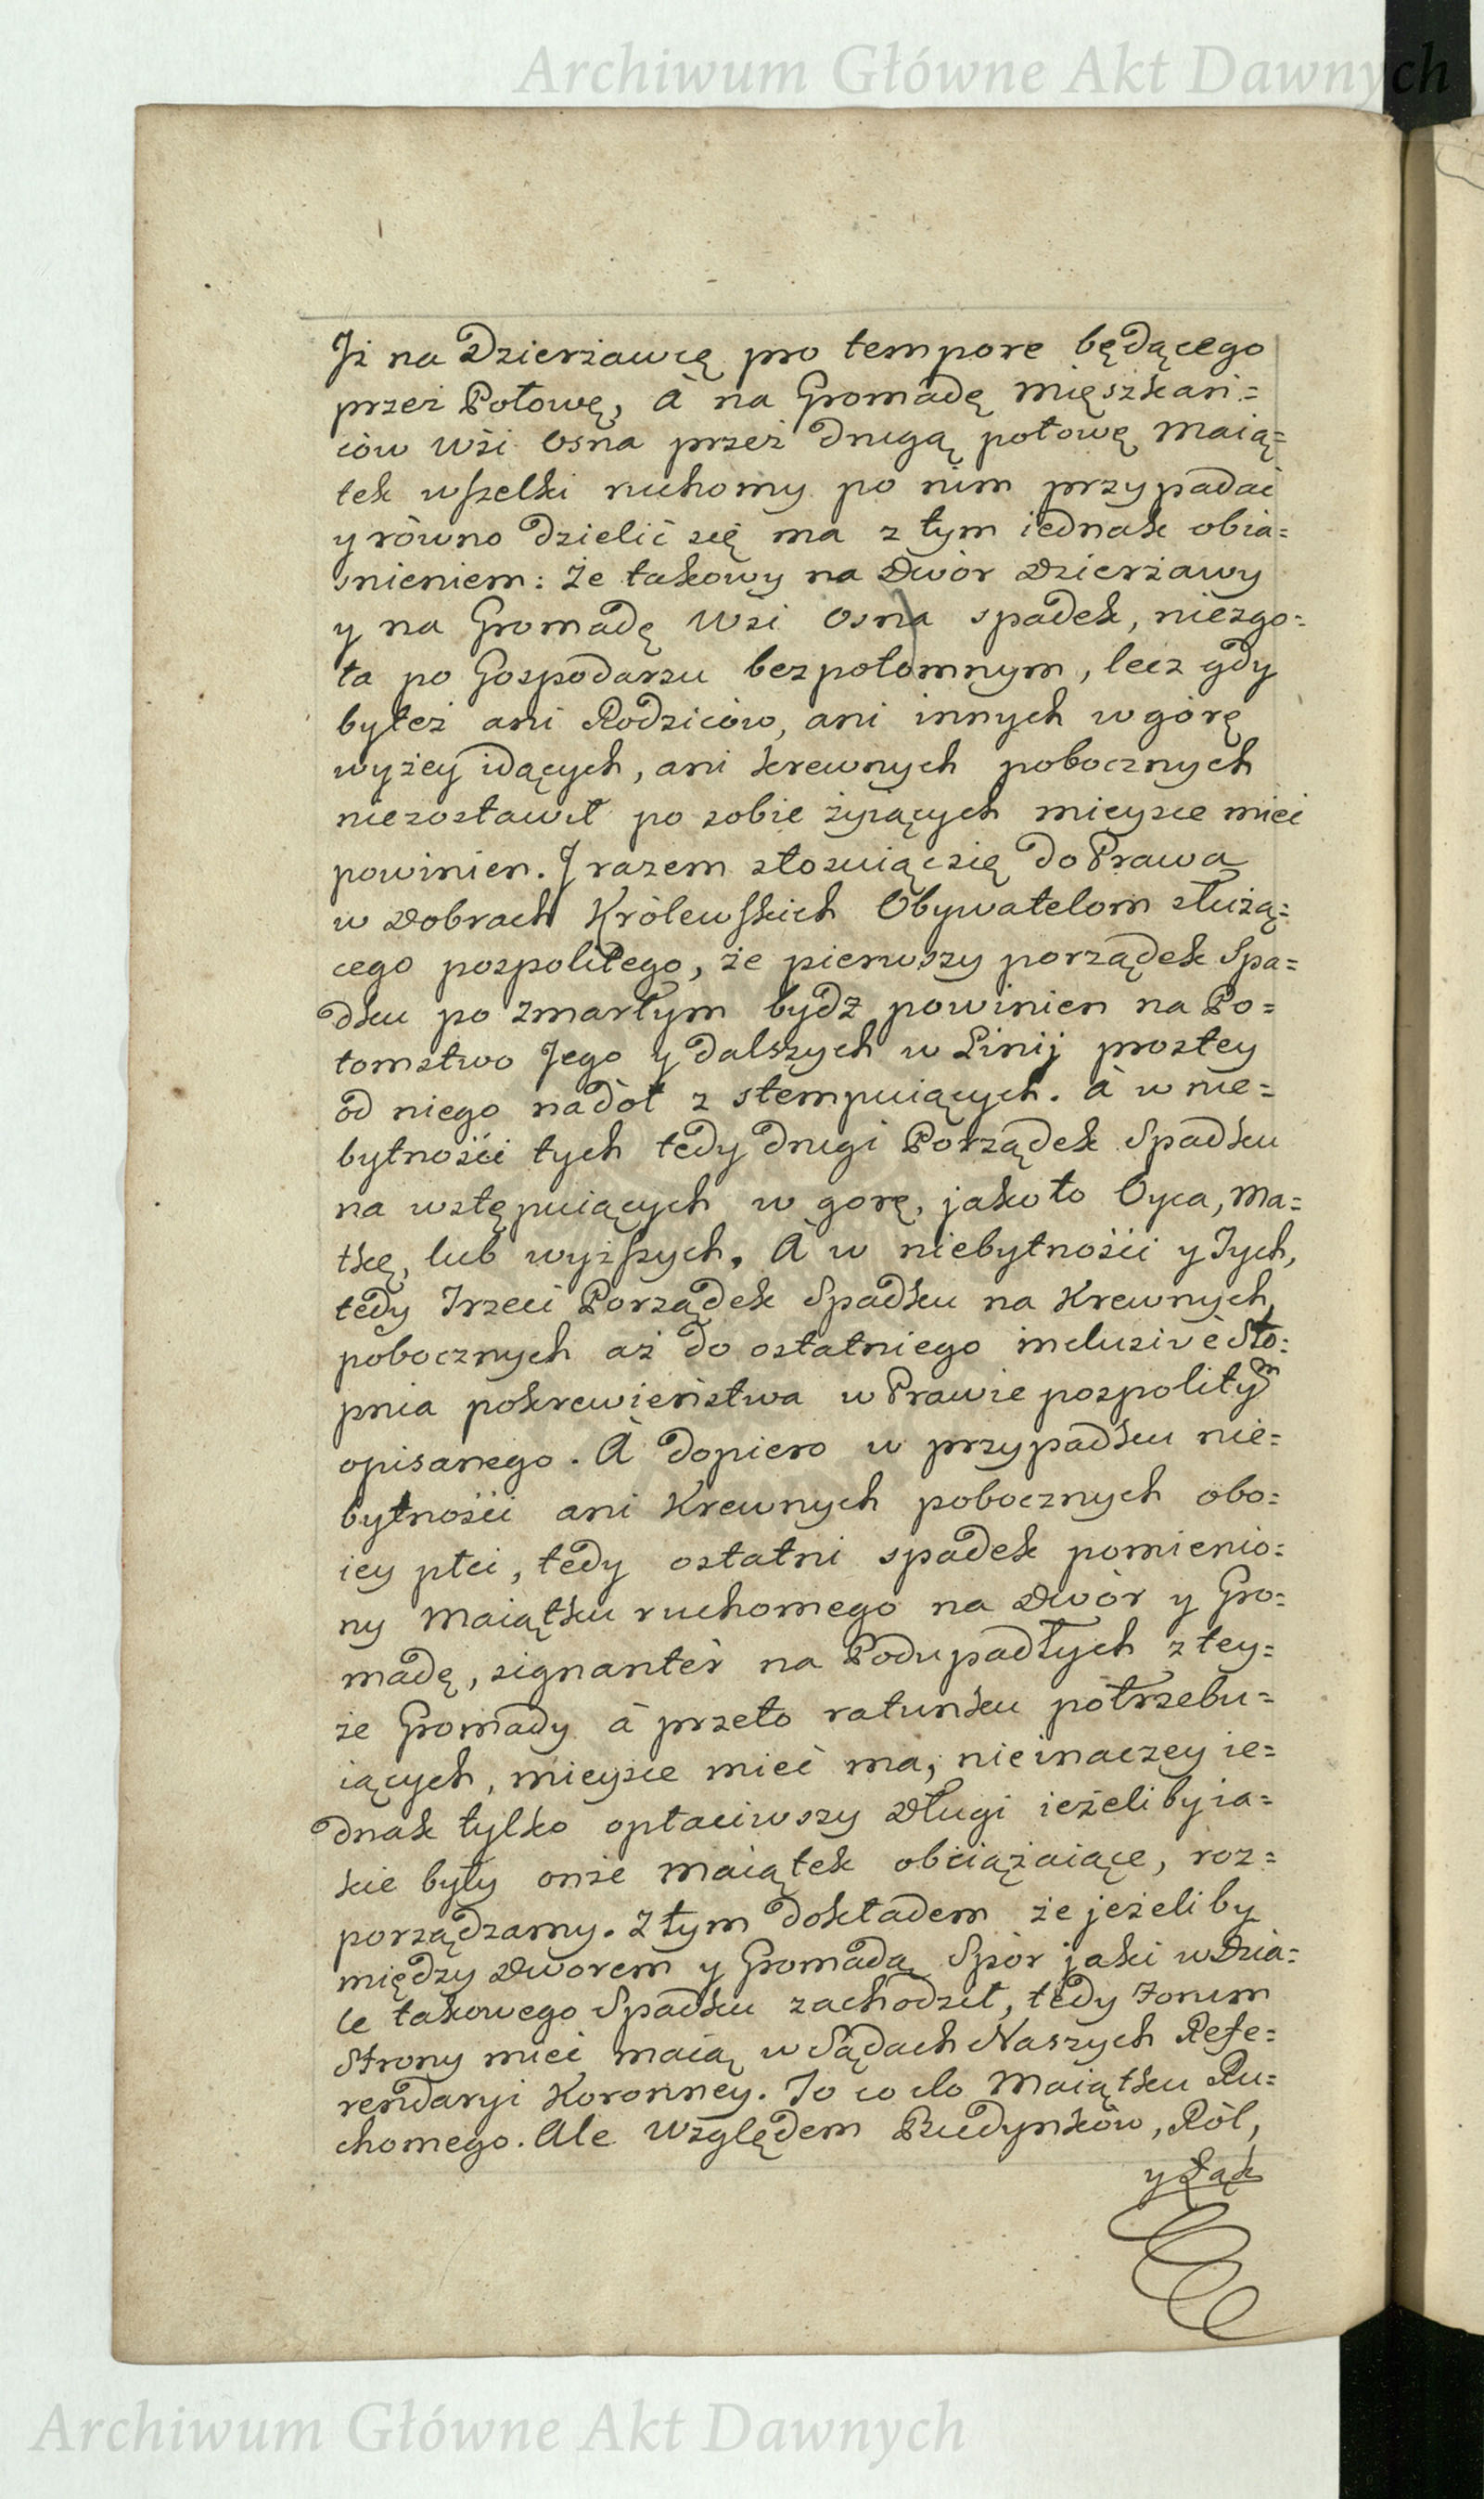 Archiwum Główne Akt Dawnych
Jż na Dzierżawcę pro tempore będącego
przez Połowę, à na Gromadę Mięszkań=
ców Wśi Osna przez drugą połowę Maią=
tek wszelki ruchomy po nim przypadać
y równo dzielić się ma z tym iednak obia=
snieniem: że takowy na Dwór Dzierżawy
y na Gromadę Wsi Osna spadek, niezgo=
ła po Gospodarzu bezpotomnym, lecz gdy
byteż ani Rodziców, ani innych w górę
wyżey idących, ani krewnych pobocznych
niezostawił po sobie żyiących mieysce mieć
powinien. J razem stosuiąc się do Prawa
w Dobrach Królewskich Obywatelom służą=
cego pospolitego, że pierwszy porządek Spa=
dku po Zmarłym bydź powinien na Po=
tomstwo Jego y dalszych w Linij prostey
od niego nadół z stempuiących. à w nie=
bytnośći tych tedy drugi Porządek Spadku
na wstępuiących w gorę, jako to Oyca, Ma=
tkę, lub wyższych. À w niebytnośći y Tych,
tedy Trzeci Porządek Spadku na Krewnych
pobocznych aż do ostatniego inclusivè Sto=
pnia pokrewieństwa w Prawie pospolitym
opisanego. À dopiero w przypadku nie=
bytnośći ani Krewnych pobocznych obo=
iey płci, tedy ostatni spadek pomienio=
ny Maiątku ruchomego na Dwór y Gro=
madę, signantèr na Podupadłych z tey=
że Gromady à przeto ratunku potrzebu=
iących, mieysce mieć ma, nieinaczey ie=
dnak tylko opłaciwszy Długi ieżeliby ia=
kie były onże Maiątek obciążaiące, roz=
porządzamy. Z tym dokładem że jeżeliby
między Dworem y Gromadą Spór jaki w Dzia=
le takowego Spadku zachodził, tedy Forum
Strony mieć maią w Sądach Naszych Refe=
rendaryi Koronney. To co do Maiątku Ru=
chomego. Ale Względem Budynków, Ról,
y Łąk
Archiwum Główne Akt Dawnych